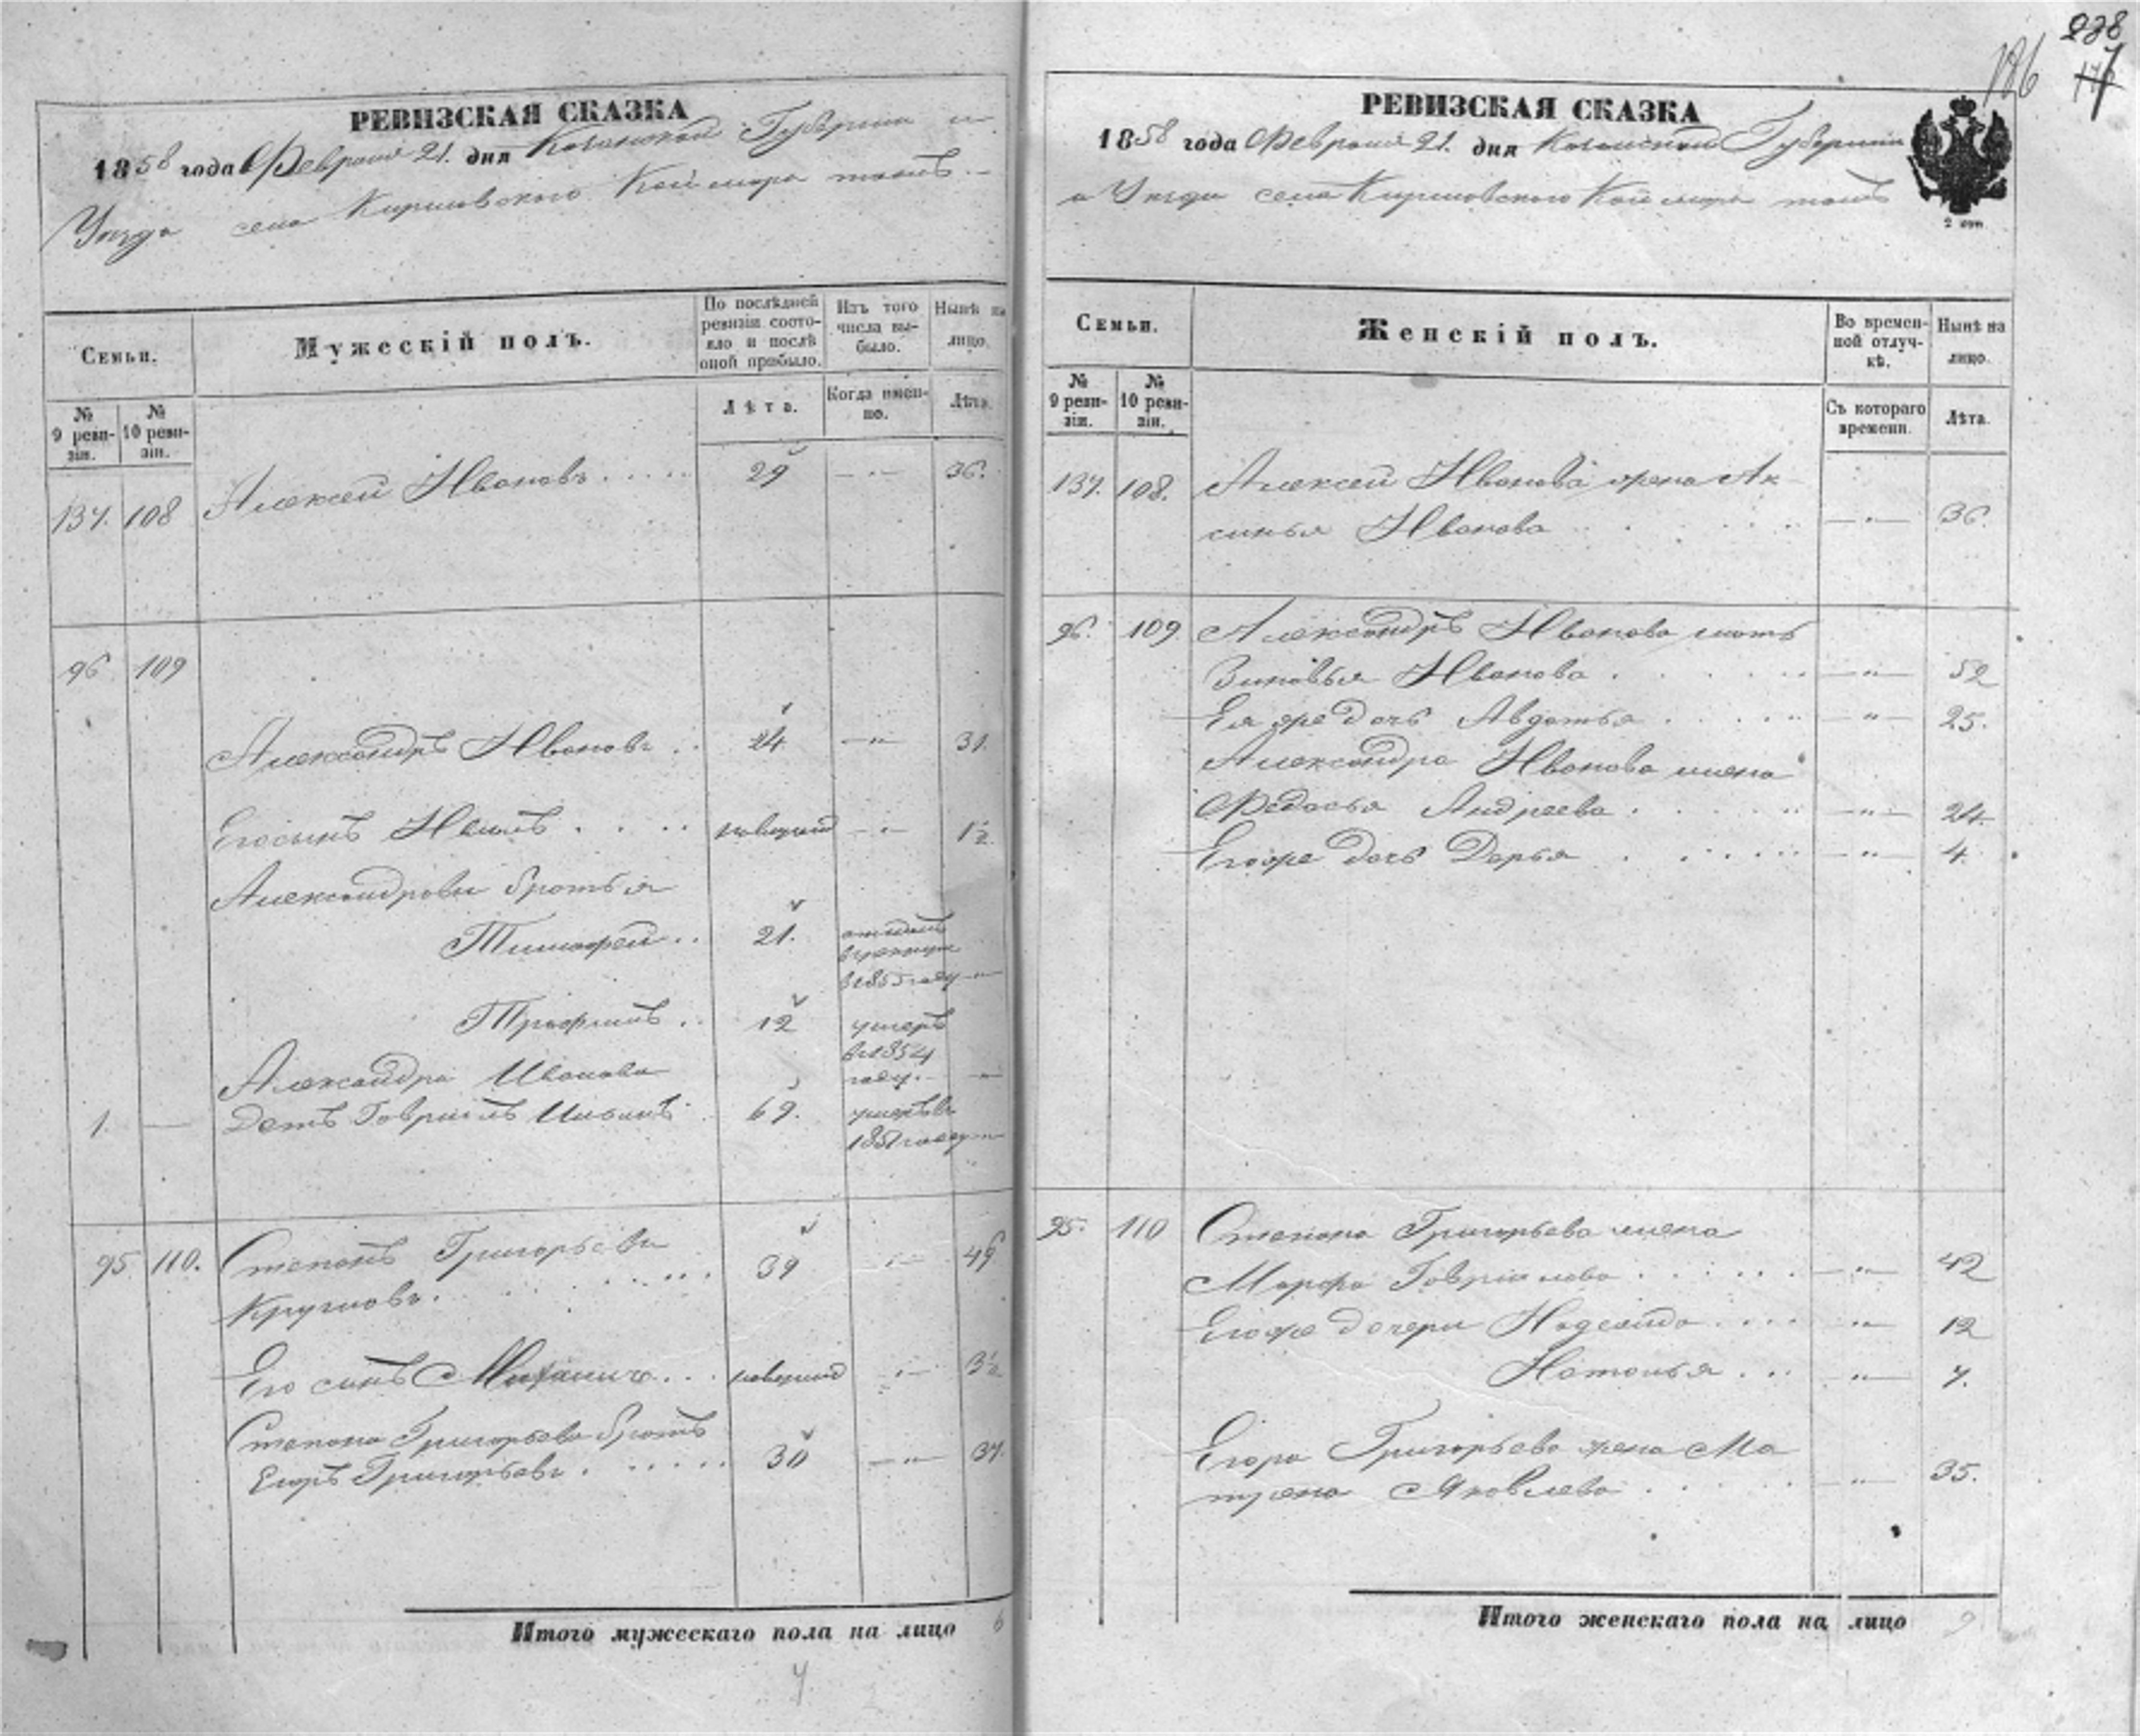 РЕВИЗСКАЯ СКАЗКА
1858 года Февраля 21. дня Казанской Губернии и
Уезда села Кириловского Каймара тожъ.
Семьи.
Мужескій полъ.
По послѣдней ревизіи состояло и послѣ оной прибыло.
Изъ того числа выбыло.
Нынѣ на лицо.
№ 9 ревизіи.
№ 10 ревизіи.
Лѣта.
Когда именно.
Лѣта.
137. 108 Алексей Ивановъ 29 36.
96 109
Александръ Ивановъ 24 31.
Его сынъ новорожд 1½
Александровы братья
Тимофей 21. отданъ
в рекруты
в 1855 году
Трофимъ 12 умеръ
в 1854
году.
Александра Иванова
1. дедъ Гаврилъ 69. умеръ въ
1851 году
95 110. Степанъ Григорьевъ 39 46
Кругловъ
Его сынъ Михаило новорожд 3½
Степана Григорьева братъ
Егоръ Григорьевъ 30 37.
Итого мужескаго пола на лицо 6
238
186
РЕВИЗСКАЯ СКАЗКА
1858 года Февраля 21. дня Казанской Губерніи
и Уезда села Кирилловского Каймара тожъ
2 коп
Семьи.
Женскій полъ.
Во временной отлучкѣ.
Нынѣ на лицо.
№ 9 ревизіи.
№ 10 ревизіи.
Съ котораго времени.
Лѣта.
137. 108. Алексея Иванова жена Ак
синья Иванова 36.
96. 109. Александръ Иванова мать
Зиновья Иванова 52
Ея же дочь Авдотья 25.
Александра Иванова жена
Федосья Андреева 24.
Его же дочь Дарья 4.
95. 110 Степана Григорьева жена
Марфа Гаврилова 42
Его же дочери Надежда 12
Наталья 7.
Егора Григорьева жена Ма
трена Яковлева 35.
Итого женскаго пола на лицо 9